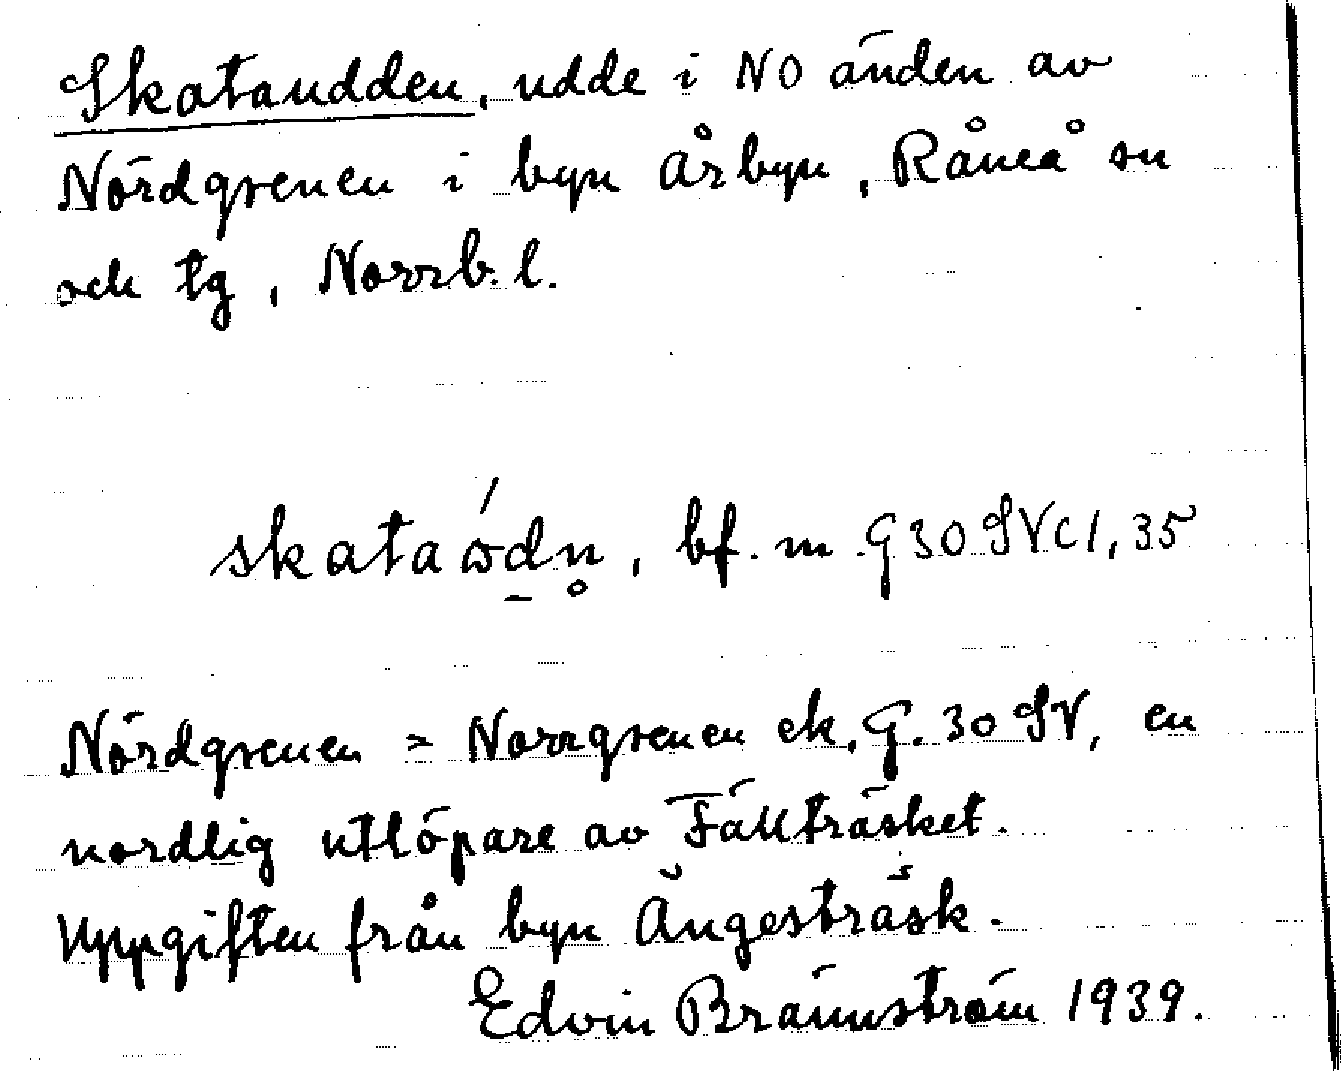 Skataudden, udde i NO änden av
Nördgrenen i byn Årbyn, Råneå sn
och tg, Norrb. l.
skataώdn̥, bf. m G 30 SV c 1, 35
Nördgrenen = Norrgrenen ek. G. 30 SV, en
nordlig utlöpare av Fällträsket.
Uppgiften från byn Ängesträsk.
Edvin Brännström 1939.